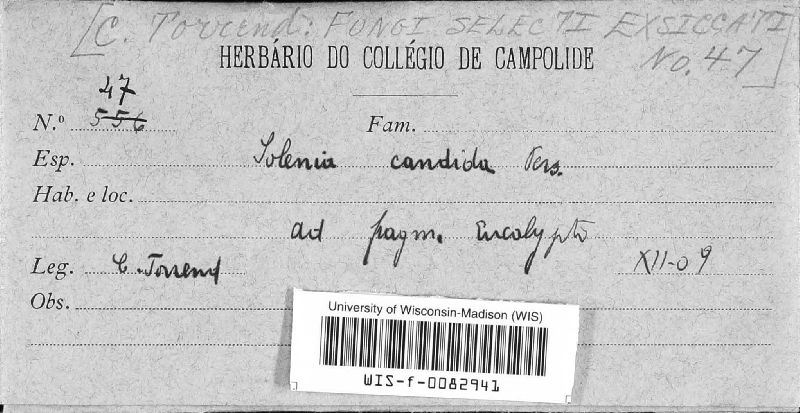 [C. Torrend: FUNGI SELECTI EXSICCATI
HERBÁRIO DO COLLÉGIO DE CAMPOLIDE
No. 47]
47
N.º 556 Fam.
Esp. Solenia candida Pers.
Hab. e loc.
ad fragm. Eucalypti
Leg. C. Torrend XII-09
Obs.
University of Wisconsin-Madison (WIS)
WIS-f-0082941